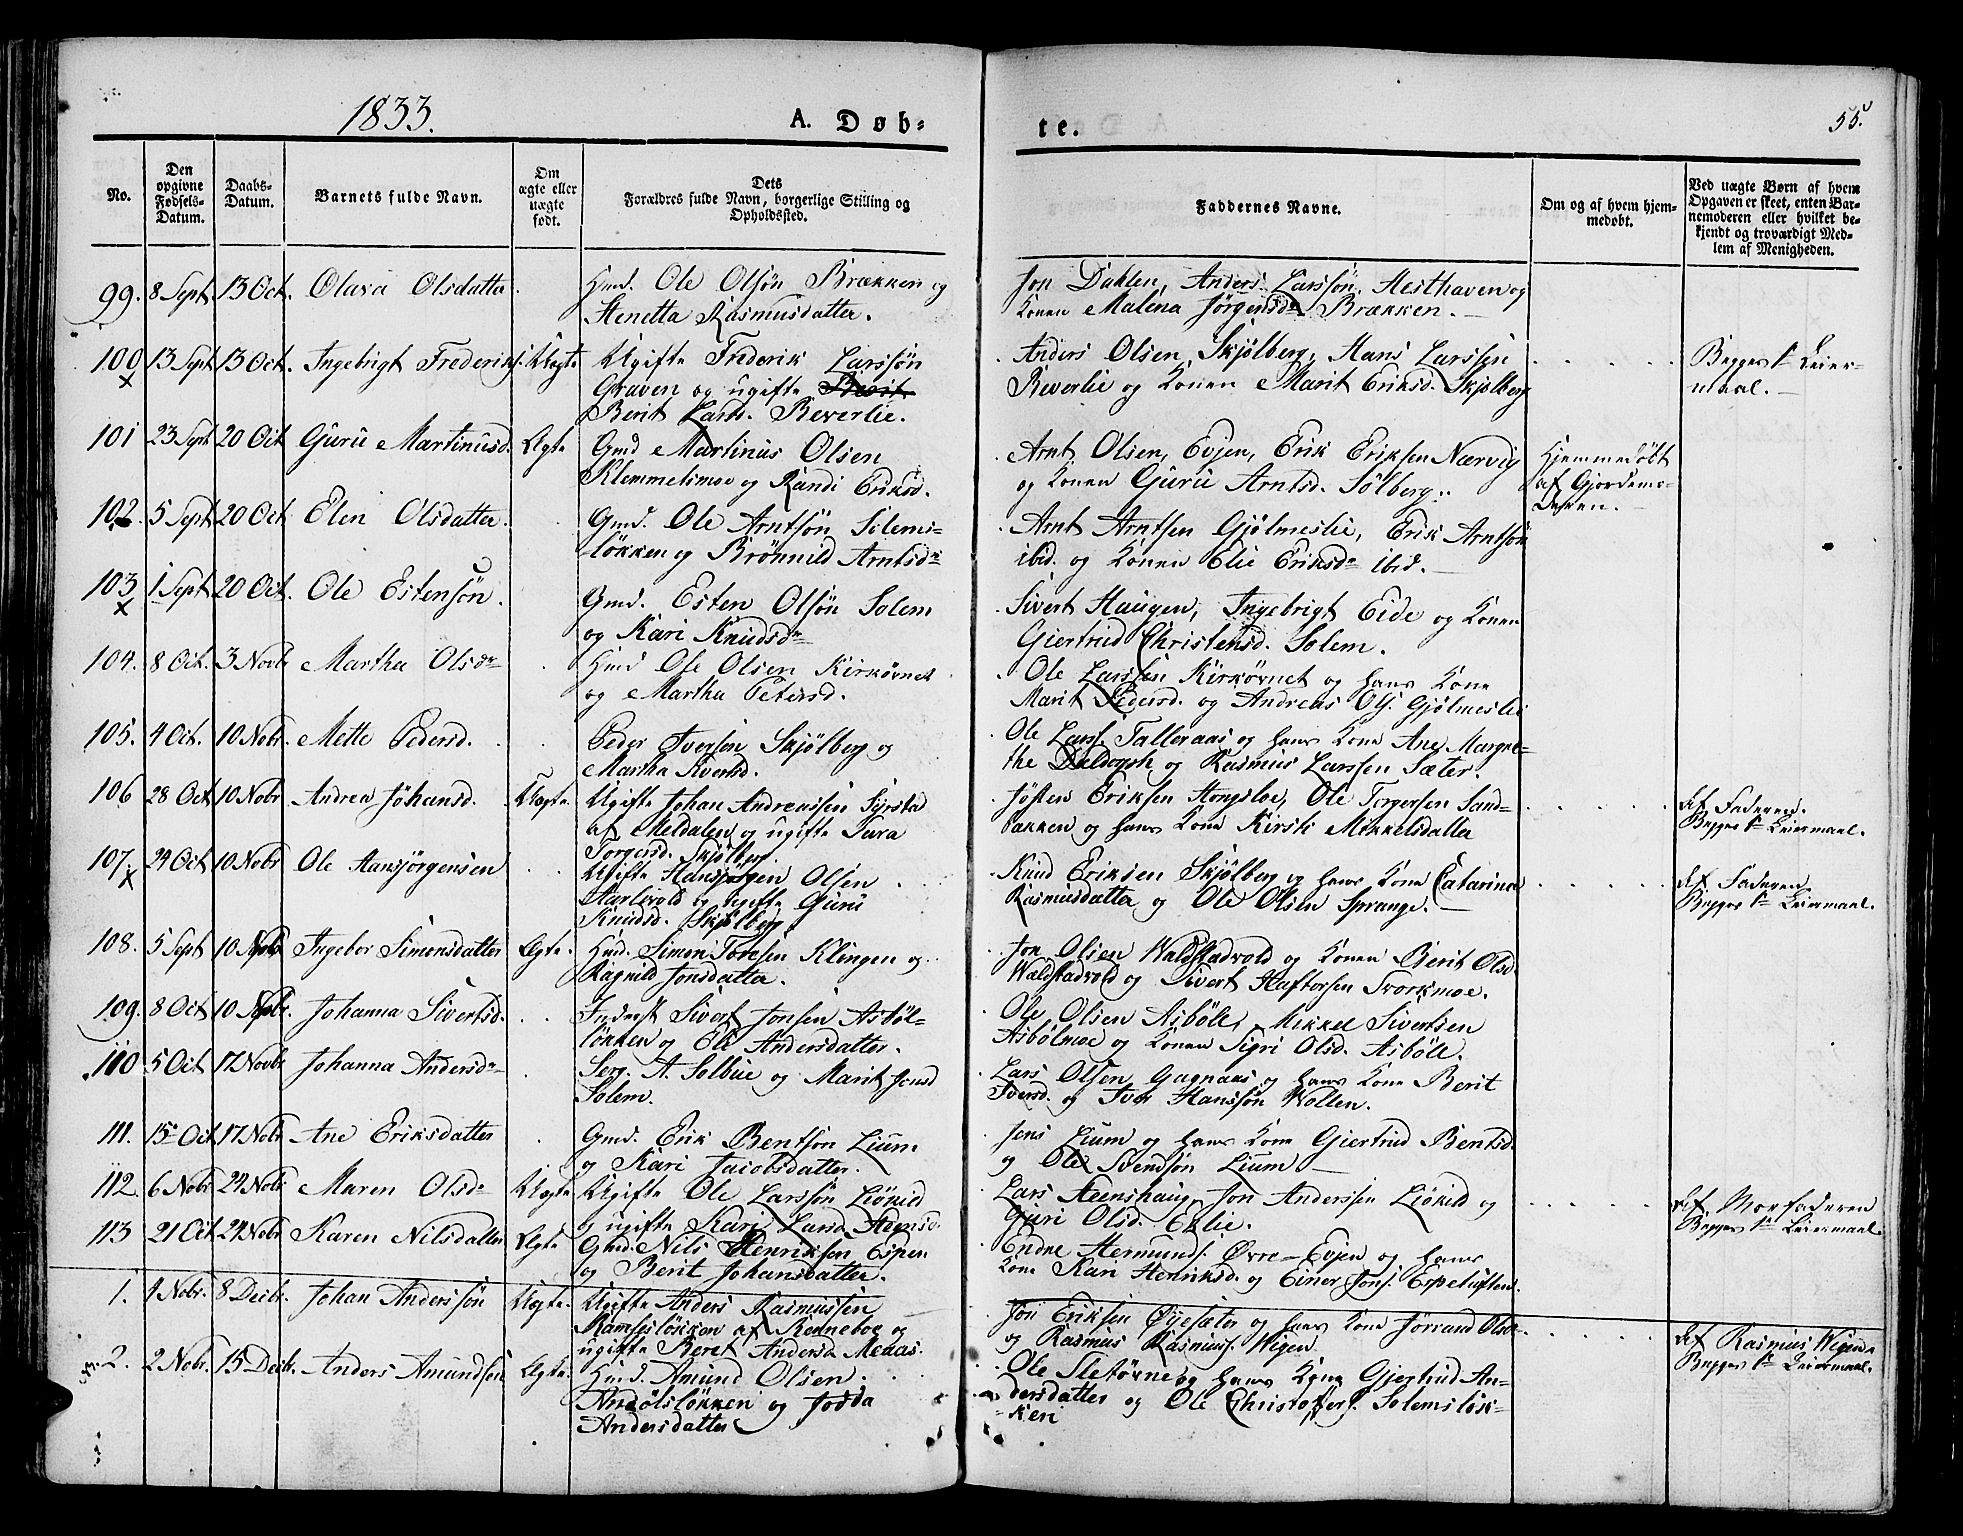 1833.
A. Døb-
te.
55.
No.
Den opgivne Fødsels-Datum.
Daabs-Datum.
Barnets fulde Navn.
Om ægte eller uægte født.
Dets Forældres fulde Navn, borgerlige Stilling og Opholdssted.
Faddernes Navne.
Om og af hvem hjem-medøbt.
Ved uægte Børn af hvem Opgaven er skeet, enten Bar-nemoderen eller hvilket be-kjendt og troværdigt Med-lem af Menigheden.
99. 8 Sept. 13 Oct. Olava Olsdatter
Huusmd. Ole Olsøn Brækken og
Stenetta Rasmusdatter.
Jon Dahlen, Anders Larssøn, Aesthaven og
Konen Malena Jörgensdr Brækken.
100 13 Sept 13 Oct. Ingebrigt Frederiks. Uægte
Ugifte Frederik Larssøn
Graven og ugifte
Berit Larsd. Reverlie.
Anders Olsen Skjølberg, Hans Larssen
Reverlie og Konen Marit Eriksd. Skjølberg
Begges 1te Leier-
maal.
101 23 Sept 20 Oct Guru Martinusd. Ægte
Gmd Martinus Olsen
Klemmetsmoe og Randi Eriksd.
Arnt Olsen, Evjen, Erik Eriksen Nærvig
og Konen Guru Arntsd. Sølberg.
Hjemmedøbt
af Gjordemo-
deren.
102. 5 Sept 20 Oct. Elen Olsdatter.
Gmd. Ole Arntsøn Solems-
løkken og Brønnild Arntsdr
Arnt Arntsen Gjølmeslie, Erik Arntsøn
ibid. og Konen Elie Eriksdr ibid.
103 1 Sept 20 Oct. Ole Estensøn.
Gmd. Esten Olsøn Solem
og Kari Knudsdr
Sivert Haugen, Ingebrigt Eide og Konen
Giertrud Christensd. Solem.
104. 8 Oct. 3 Novb Martha Olsdr
Hmd Ole Olsen Kirkøvnet
og Martha Petersd.
Ole Larssen Kirkøvnet og hans Kone
Marit Pedersd. og Andreas Ols. Gjølmeslie
105. 4 Oct. 10 Nobr. Mette Pedersd.
Peder Iversen Skjølberg og
Martha Iversd.
Ole Larss. Talleraas og hans Kone Ane Margre-
the og Rasmus Larssen Sæter.
106 28 Oct 10 Nobr Andrea Johansd. Uægte.
Ugifte Johan Andreassen Syrstad
af Meldalen og ugifte Sura
Torgersd. Skjølberg.
Josten Eriksen Hongsloe, Ole Torgersen Sand-
bakken og hans Kone Kirsti Mikkelsdatter
af Faderen.
Begges 1te Leiermaal.
107 24 Oct 10 Nobr Ole Hansjörgensen
Ugifte Hansjörgen Olsen
og ugifte Guru
Knudsd. Skjølberg.
Knud Eriksen Skjølberg og hans Kone Catarina
Rasmusdatter og Ole Olsen Sprange.
af Faderen
Begges 1te Leiermaal.
108. 5 Sept 10 Nobr Ingebor Simonsdatter Ægte.
Hmd. Simon Toresen Klingen og
Ragnild Jonsdatter.
Jon Olsen Waldstadvold og Konen Berit Olsd.
Waldstadvold og Sivert Haftorsen Svorkmoe.
109. 8 Oct 10 Nobr. Johanna Sivertsd.
Inderst Sivert Jonsen Asbøl-
løkken og Eli Andersdatter.
Ole Olsen Asbøll, Mikkel Sivertsen
Asbølmoe og Konen Sigri Olsd. Asbøll.
110 5 Oct 17 Novbr Johanna Andersdr
Serg. A. Solbue og Marit Jonsd
Solem.
Lars Olsen Gagnaas og hans Kone Berit
Iversd. og Iver Hanssøn Wollen.
111. 15 Oct 17 Nobr Ane Eriksdatter
Gmd. Erik Bentsøn Lium
og Kari Jacobsdatter.
Jens Lium og hans Kone Giertrud Bentsd.
og Ole Svendsøn Lium
112 6 Nobr 24 Nobr Maren Olsdr Uægte
Ugifte Ole Larssøn Liøkild
og ugifte Kari Larsd.
Lars Steenshaug, Jon Anderssen Liøkild og
Guri Olsd. Eklie.
af Morfaderen
Begges 1te Leiermaal.
113 21 Oct 24 Nobr Karen Nilsdatter Ægte
Gmd. Nils Henriksen Espen
og Berit Johansdatter.
Endre Hermunds. Øvre-Evjen og hans
Kone Kari Henriksd. og Einer Jons. Espeluften.
1. 1 Nobr. 8 Decbr. Johan Anderssøn Uægte.
Ugifte Anders Rasmussen
Ramsesløkken af Renneboe og
ugifte Beret Andersd. Meaas.
Jon Eriksen Øyesæter og hans Kone Jorrand Olsdr
og Rasmus Rasmuss. Wigen
af Rasmus Wigen.
Begges 1te Leiermaal.
2. 2 Nobr. 15 Decbr. Anders Amundsøn Ægte.
Hmd. Amund Olsen
Andølsløkken og
Andersdatter
Ole Sletøvne og hans Kone Gjertrud An-
dersdatter og Ole Christoffers. Solemsløk-
ken